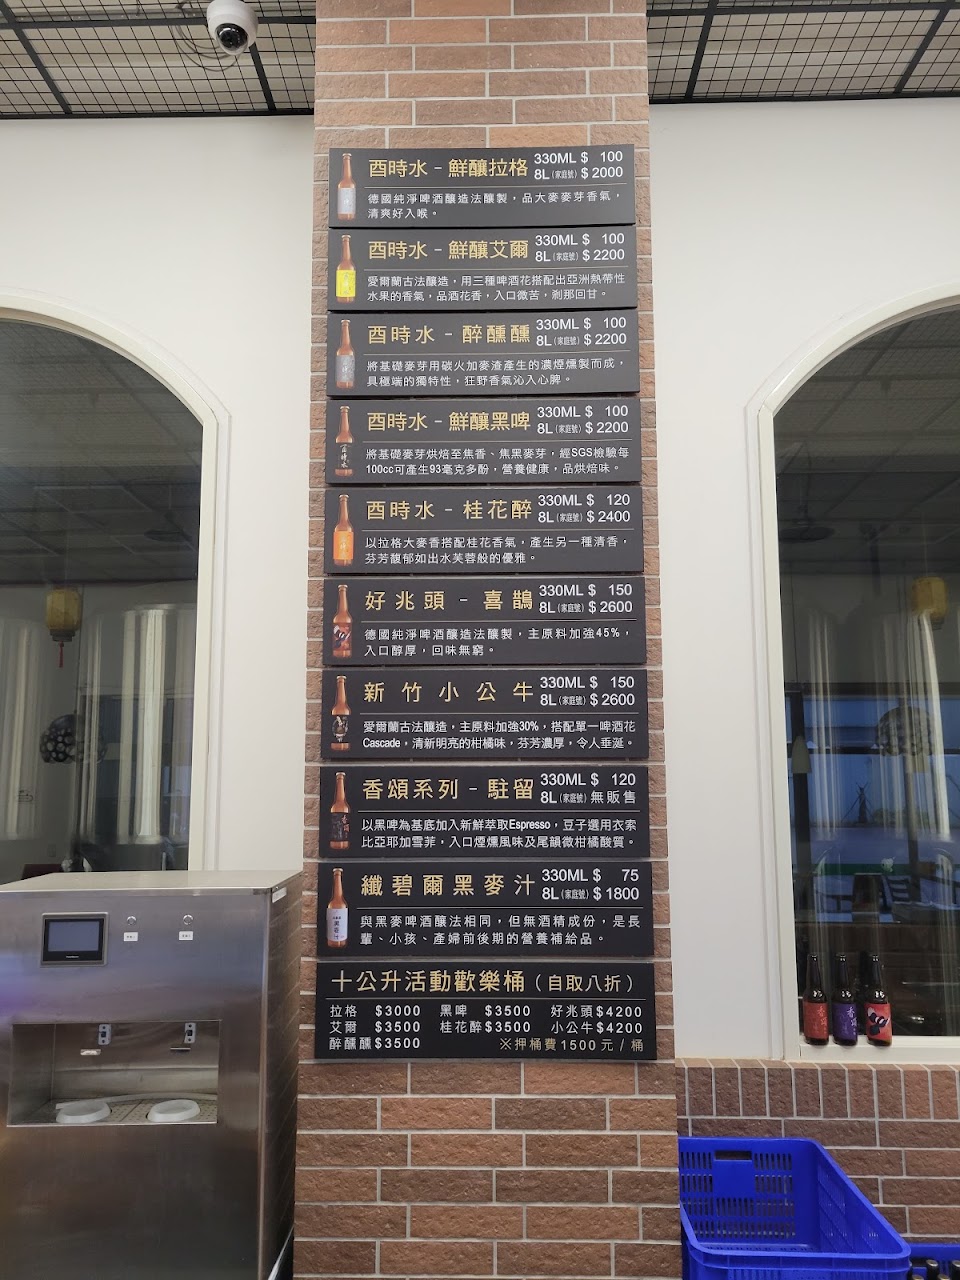 酉時水 - 鮮釀拉格 330ML $ 100
8L(家庭號) $ 2000
德國純淨啤酒釀造法釀製，品大麥麥芽香氣，
清爽好入喉。
酉時水 - 鮮釀艾爾 330ML $ 100
8L(家庭號) $ 2200
愛爾蘭古法釀造，用三種啤酒花搭配出亞洲熱帶性
水果的香氣，品酒花香，入口微苦，剎那回甘。
酉時水 - 醉醺醺 330ML $ 100
8L(家庭號) $ 2200
將基礎麥芽用碳火加麥渣產生的濃煙燻製而成，
具極端的獨特性，狂野香氣沁入心脾。
酉時水 - 鮮釀黑啤 330ML $ 100
8L(家庭號) $ 2200
將基礎麥芽烘焙至焦香、焦黑麥芽，經SGS檢驗每
100cc可產生93毫克多酚，營養健康，品烘焙味。
酉時水 - 桂花醉 330ML $ 120
8L(家庭號) $ 2400
以拉格大麥香搭配桂花香氣，產生另一種清香，
芬芳馥郁如出水芙蓉般的優雅。
好兆頭 - 喜鵲 330ML $ 150
8L(家庭號) $ 2600
德國純淨啤酒釀造法釀製，主原料加強45%，
入口醇厚，回味無窮。
新竹小公牛 330ML $ 150
8L(家庭號) $ 2600
愛爾蘭古法釀造，主原料加強30%，搭配單一啤酒花
Cascade，清新明亮的柑橘味，芬芳濃厚，令人垂涎。
香頌系列 - 駐留 330ML $ 120
8L(家庭號) 無販售
以黑啤為基底加入新鮮萃取Espresso，豆子選用衣索
比亞耶加雪菲，入口煙燻風味及尾韻微柑橘酸質。
纖碧爾黑麥汁 330ML $ 75
8L(家庭號) $ 1800
與黑麥啤酒釀法相同，但無酒精成份，是長
輩、小孩、產婦前後期的營養補給品。
十公升活動歡樂桶（自取八折）
拉格 $3000 黑啤 $3500 好兆頭$4200
艾爾 $3500 桂花醉$3500 小公牛$4200
醉醺醺$3500 ※押桶費1500元/桶